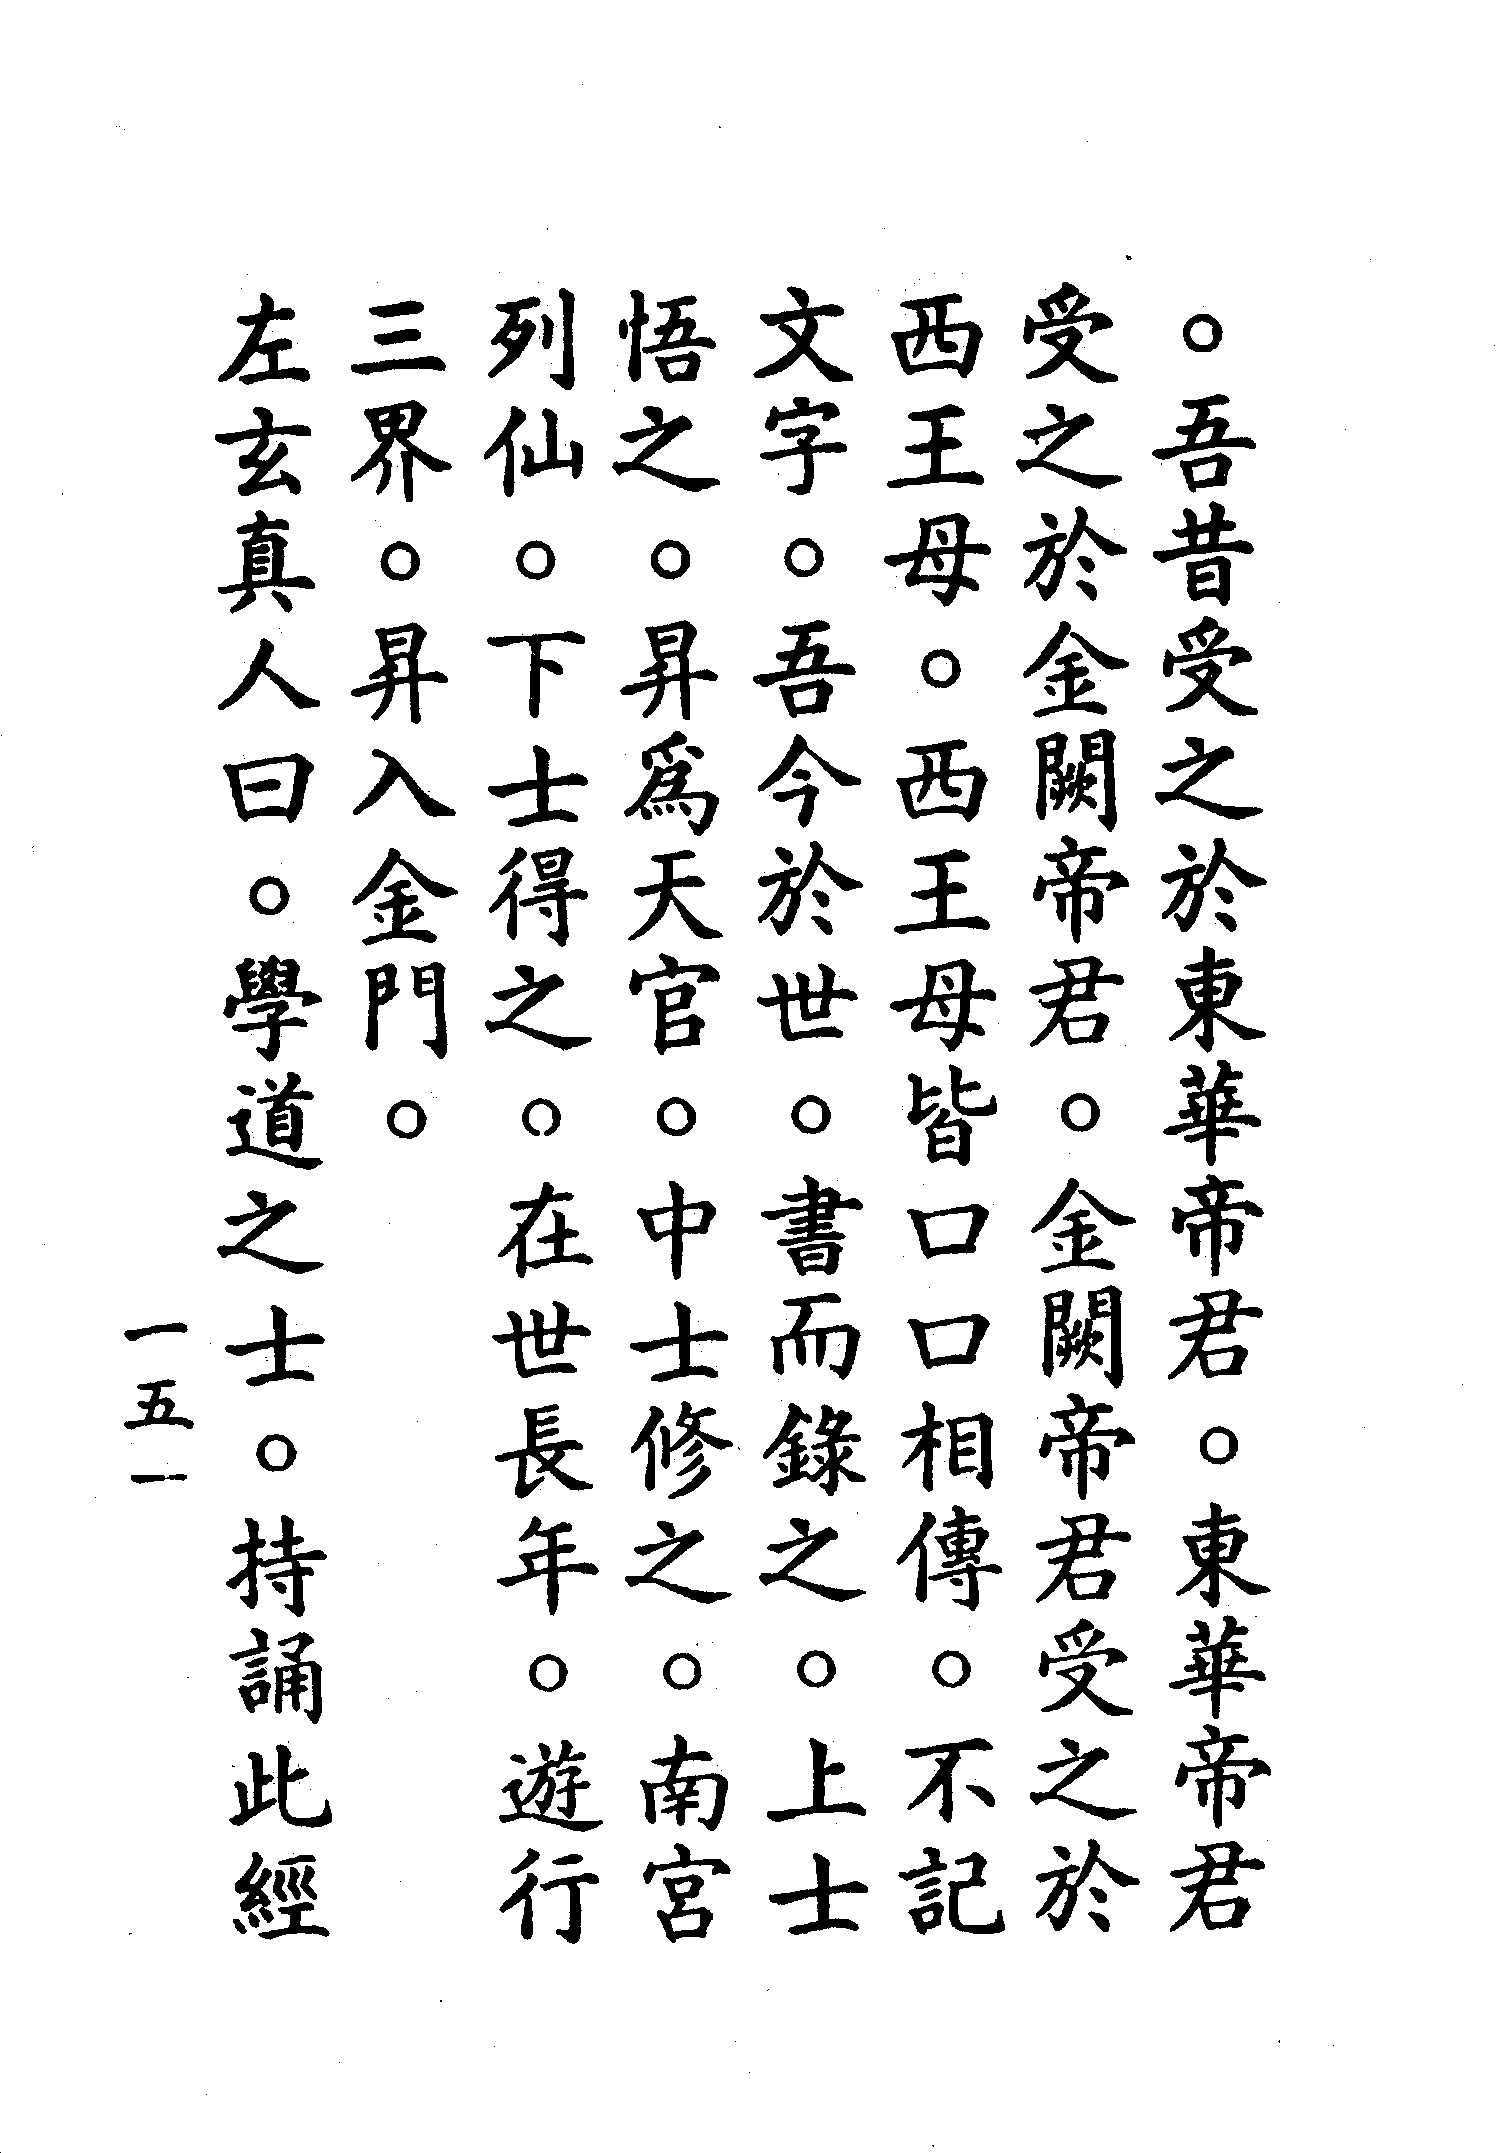 。吾昔受之於東華帝君。東華帝君
受之於金闕帝君。金闕帝君受之於
西王母。西王母皆口口相傳。不記
文字。吾今於世。書而錄之。上士
悟之。昇為天官。中士修之。南宮
列仙。下士得之。在世長年。遊行
三界。昇入金門。
左玄真人曰。學道之士。持誦此經
一五一